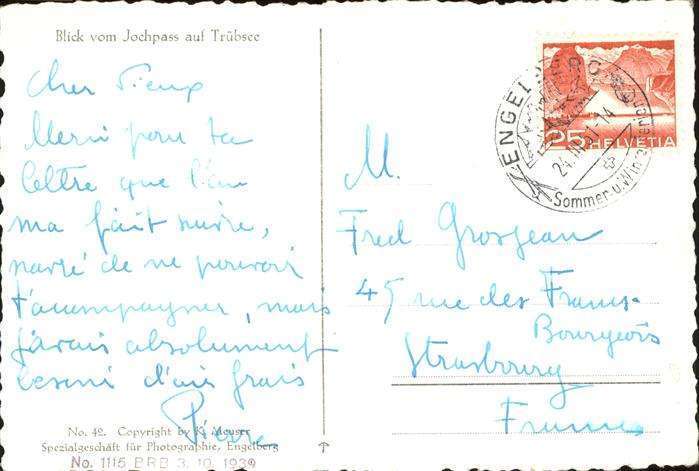 Blick vom Jochpass auf Trübsee
Cher Vieux
Merci pour ta
lettre que l'on
m'a fait suivre,
navré de ne pouvoir
t'accompagner, mais
j'avais absolument
besoin d'air frais
Pierre
No. 42. Copyright by K. Meuser
Spezialgeschäft für Photographie, Engelberg
No. 1115 BRB 3. 10. 1939
ENGELBERG
24. 51-14
Sommer- u. Winter
25 HELVETIA
M.
Fred Grosjean
45 rue des Francs-
Bourgeois
Strasbourg
France